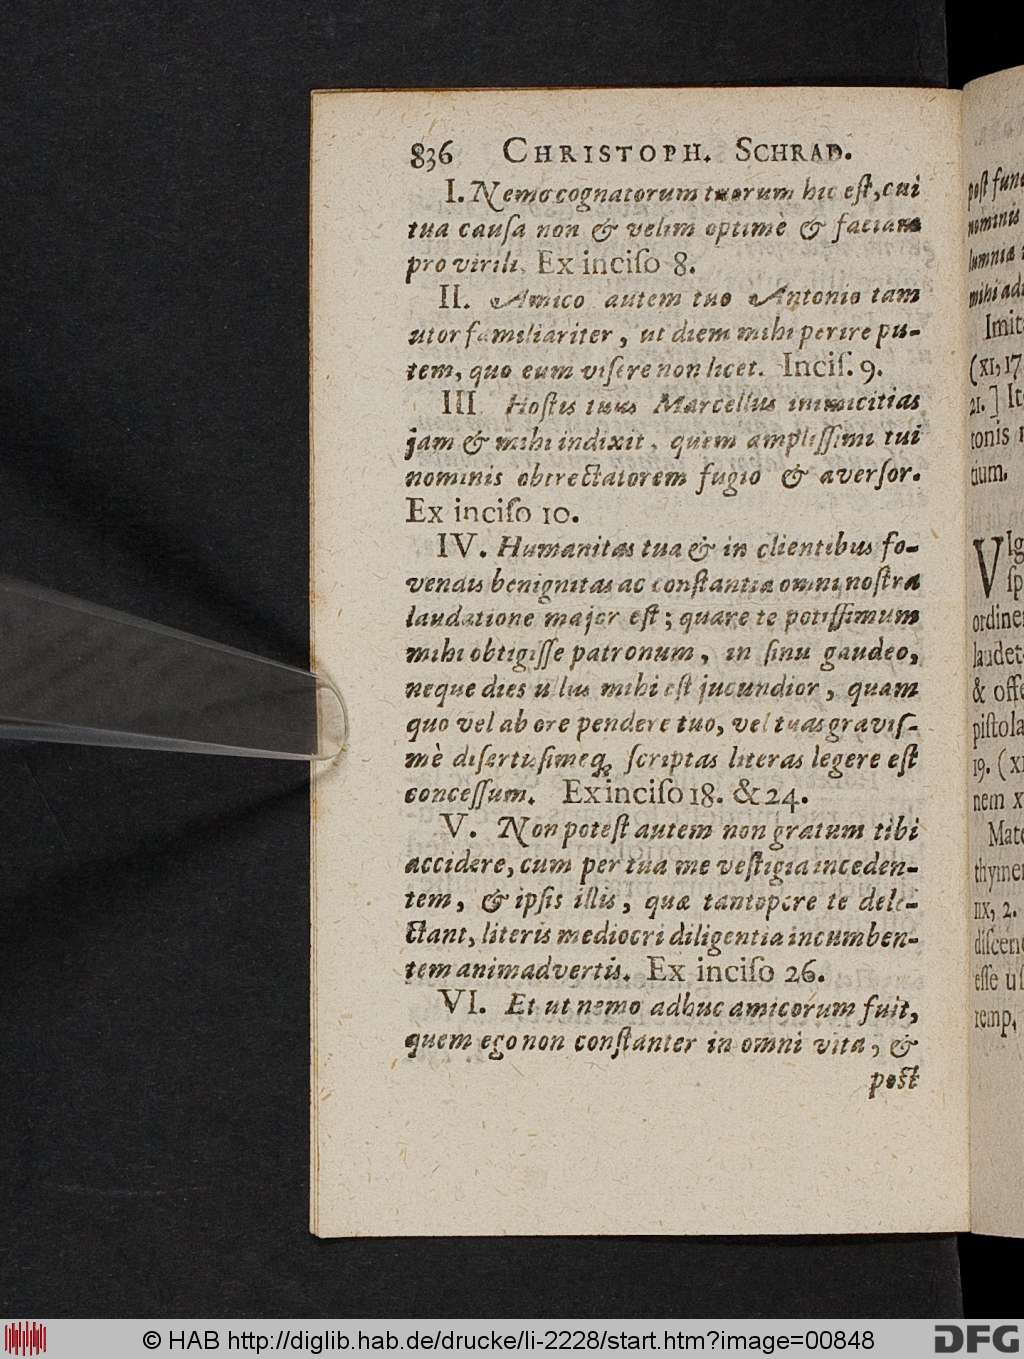 836 CHRISTOPH. SCHRAD.
I. Nemo cognatorum tuorum hic eſt, cui
tua cauſa non & velim optimè & faciam
pro virili. Ex inciſo 8.
II. Amico autem tuo Antonio tam
utor familiariter, ut diem mihi perire pu-
tem, quo eum viſere non licet. Inciſ. 9.
III Hoſtis tuus Marcellus inimicitias
jam & mihi indixit, quem ampliſſimi tui
nominis obtrectatorem fugio & averſor.
Ex inciſo 10.
IV. Humanitas tua & in clientibus fo-
vendis benignitas ac conſtantia omni noſtra
laudatione major eſt; quare te potiſſimum
mihi obtigiſſe patronum, in ſinu gaudeo,
neque dies ullus mihi eſt jucundior, quam
quo vel ab ore pendere tuo, vel tuas graviſ-
mè diſertiſimeq; ſcriptas literas legere eſt
conceſſum. Ex inciſo 18. & 24.
V. Non poteſt autem non gratum tibi
accidere, cum per tua me veſtigia inceden-
tem, & ipſis illis, quæ tantopere te dele-
ctant, literis mediocri diligentia incumben-
tem animadvertis. Ex inciſo 26.
VI. Et ut nemo adhuc amicorum fuit,
quem ego non conſtanter in omni vita, &
poſt
poſt fune
nominis
lumniæ
mihi ad
Imit
(XI, 17
21.] It
tonis
tium.
VIg
ſp
ordine
laudet
& offe
piſtola
19. (XI
nem x
Mate
thymem
IIX, 2.
diſcen
eſſe uſ
temp,
© HAB http://diglib.hab.de/drucke/li-2228/start.htm?image=00848
DFG